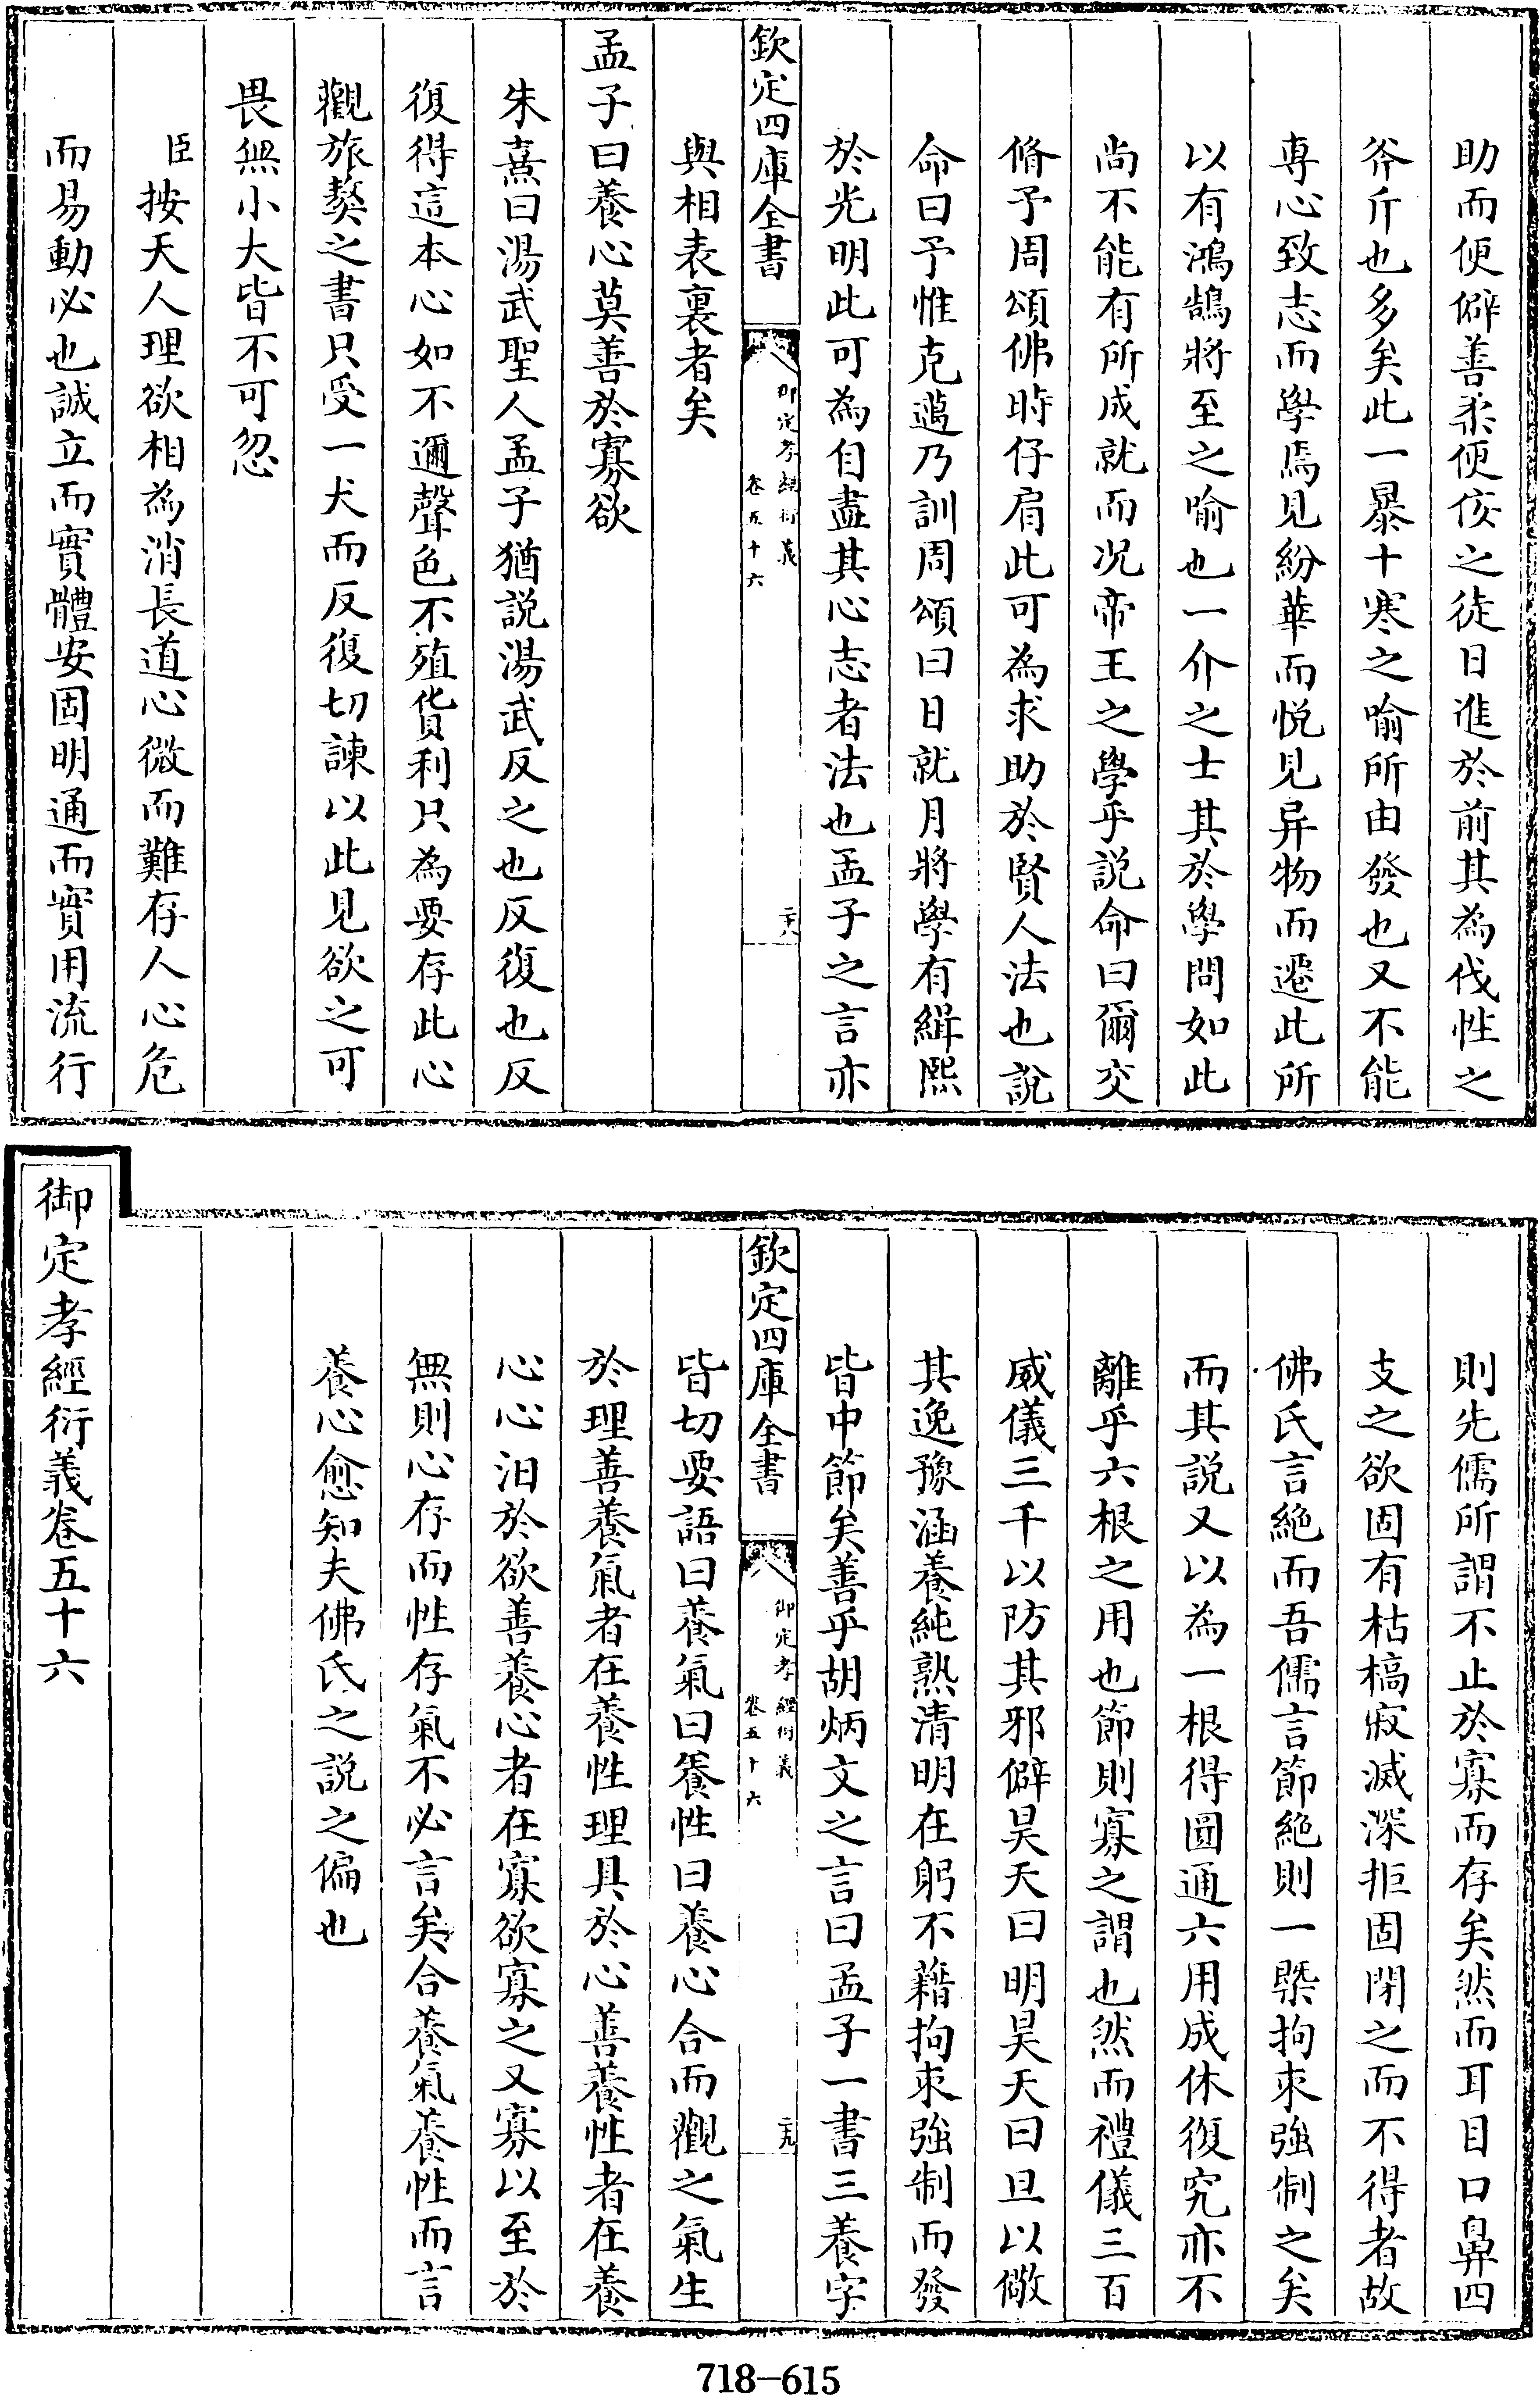 助而便僻善柔便佞之徒日進於前其為伐性之
斧斤也多矣此一暴十寒之喻所由發也又不能
專心致志而學焉見紛華而悅見异物而遷此所
以有鴻鵠將至之喻也一介之士其於學問如此
尚不能有所成就而况帝王之學乎説命曰爾交
脩予周頌佛時仔肩此可為求助於賢人法也說
命曰予惟克邁乃訓周頌曰日就月將學有緝熙
於光明此可為自盡其心志者法也孟子之言亦
欽定四庫全書
御定孝經衍義
卷五十六
二十八
與相表裏者矣
孟子曰養心莫善於寡欲
朱熹曰湯武聖人孟子猶説湯武反之也反復也反
復得這本心如不邇聲色不殖貨利只為要存此心
觀旅獒之書只受一犬而反復切諫以此見欲之可
畏無小大皆不可忽
臣按天人理欲相為消長道心微而難存人心危
而易動必也誠立而實體安固明通而實用流行
則先儒所謂不止於寡而存矣然而耳目口鼻四
支之欲固有枯槁寂滅深拒固閉之而不得者故
佛氏言絶而吾儒言節絶則一槩拘束強制之矣
而其説又以為一根得圓通六用成休復究亦不
離乎六根之用也節則寡之謂也然而禮儀三百
威儀三千以防其邪僻昊天曰明昊天曰旦以儆
其逸豫涵養純熟清明在躬不藉拘束強制而發
皆中節矣善乎胡炳文之言曰孟子一書三養字
欽定四庫全書
御定孝經衍義
卷五十六
二十九
皆切要語曰養氣曰養性曰養心合而觀之氣生
於理善養氣者在養性理具於心善養性者在養
心心汨於欲善養心者在寡欲寡之又寡以至於
無則心存而性存氣不必言矣合養氣養性而言
養心愈知夫佛氏之説之偏也
御定孝經衍義卷五十六
718-615